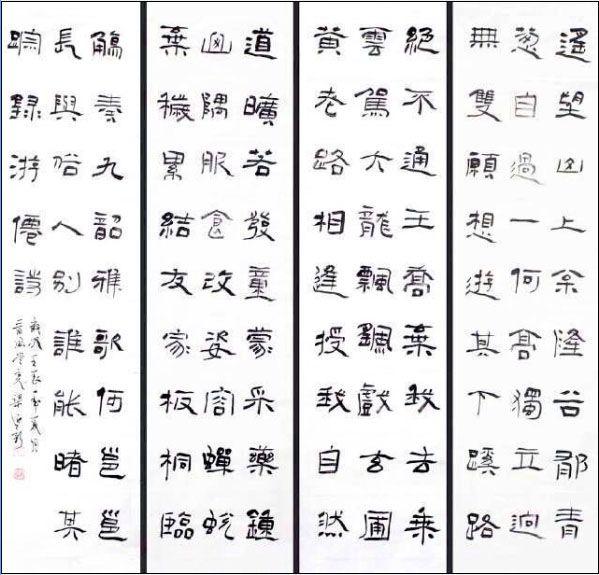 遙望山上松隆谷郁青
葱自遇一何高獨立迥
無雙願想遊其下蹊路
絕不通王喬棄我去乘
雲駕六龍飄颻戲玄圃
黃老路相逢授我自然
道曠若發童蒙采藥鍾
山隅服食改姿容蟬蛻
棄穢累結友家板桐臨
觴奏九韶雅歌何邕邕
長與俗人別誰能睹其
踪錄游僊詩